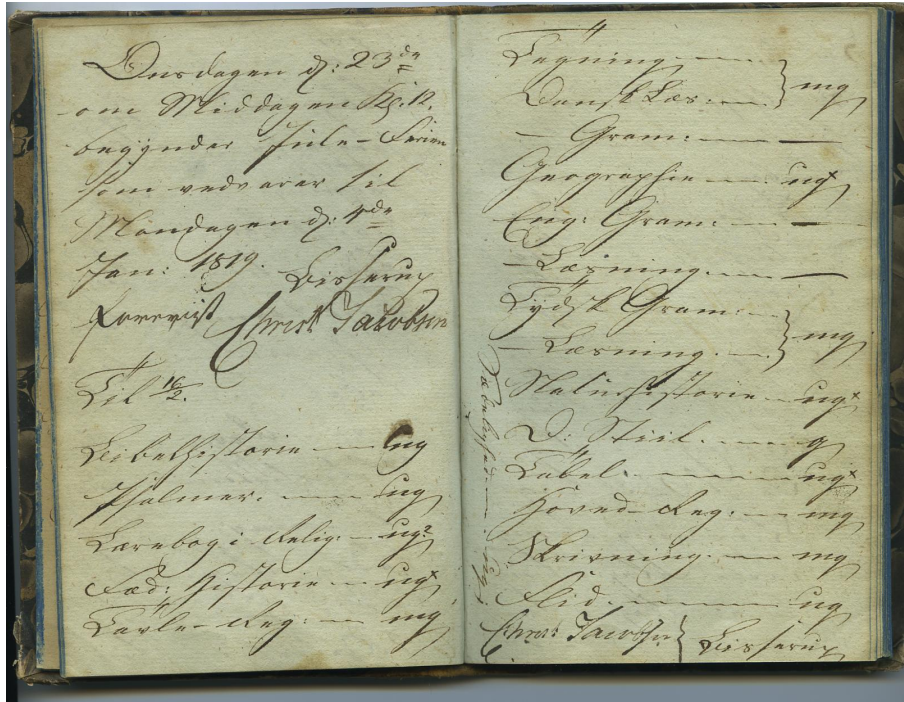 Onsdagen d: 23de
om Middagen Kl: 12.
begynder Jule-Ferien
som vedvarer til
Mandagen d: 4de
Jan: 1819.
Bisserup
Forevist Christ Jacobsen
Til 16/2.
Bibelhistorie — ug
Psalmer. — ug
Lærebog i Relig: — ug?
Fæd: Historie — ugx
Tavle-Reg: — mg
Tegning. —
Dansk Læs: — } mg
— Gram: — —
Geographie — ugx
Eng: Gram: — —
— Læsning. — —
Tydsk Gram: —
— Læsning. — } mg
Naturhistorie — ugx
D: Stiil. — g
Tabel. — ugx
Hoved-Reg: — mg
Skrivning. — mg
Flid. — ug
Sædelighed — ug
Christ Jacobsen } Bisserup